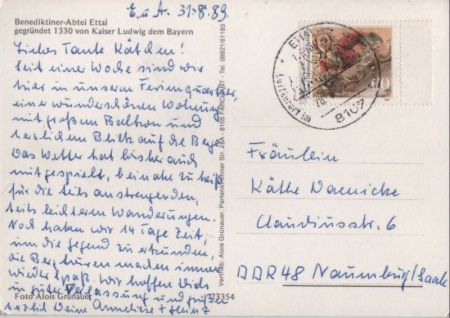 E. u. A. 31.8.89.
Benediktiner-Abtei Ettal
gegründet 1330 von Kaiser Ludwig dem Bayern
Liebes Tante Käthchen!
Seit einer Woche sind wir
hier in unserm Ferienquartier,
eine wunderschöne Wohnung
mit großem Balkon und
herrlichem Blick auf die Berge.
Das Wetter hat bisher auch
mitgespielt, beinahe zu heiß
für die teils anstrengenden,
teils leichteren Wanderungen.
Noch haben wir 14 Tage Zeit,
um die Gegend zu erkunden,
die Bergtouren machen immer
wieder Spaß. Wir hoffen Dich
in guter Verfassung und grüßen
herzlich Deine Anneliese + Heinz
Foto Alois Grünauer
223354
Vertrieb: Alois Grünauer, Partenkirchner Str. 8105 FARCHANT Tel. 08821/61183
ETTAL
8107
Fräulein
Käthe Warnicke
Claudiusstr. 6
DDR 48 Naumburg/Saale